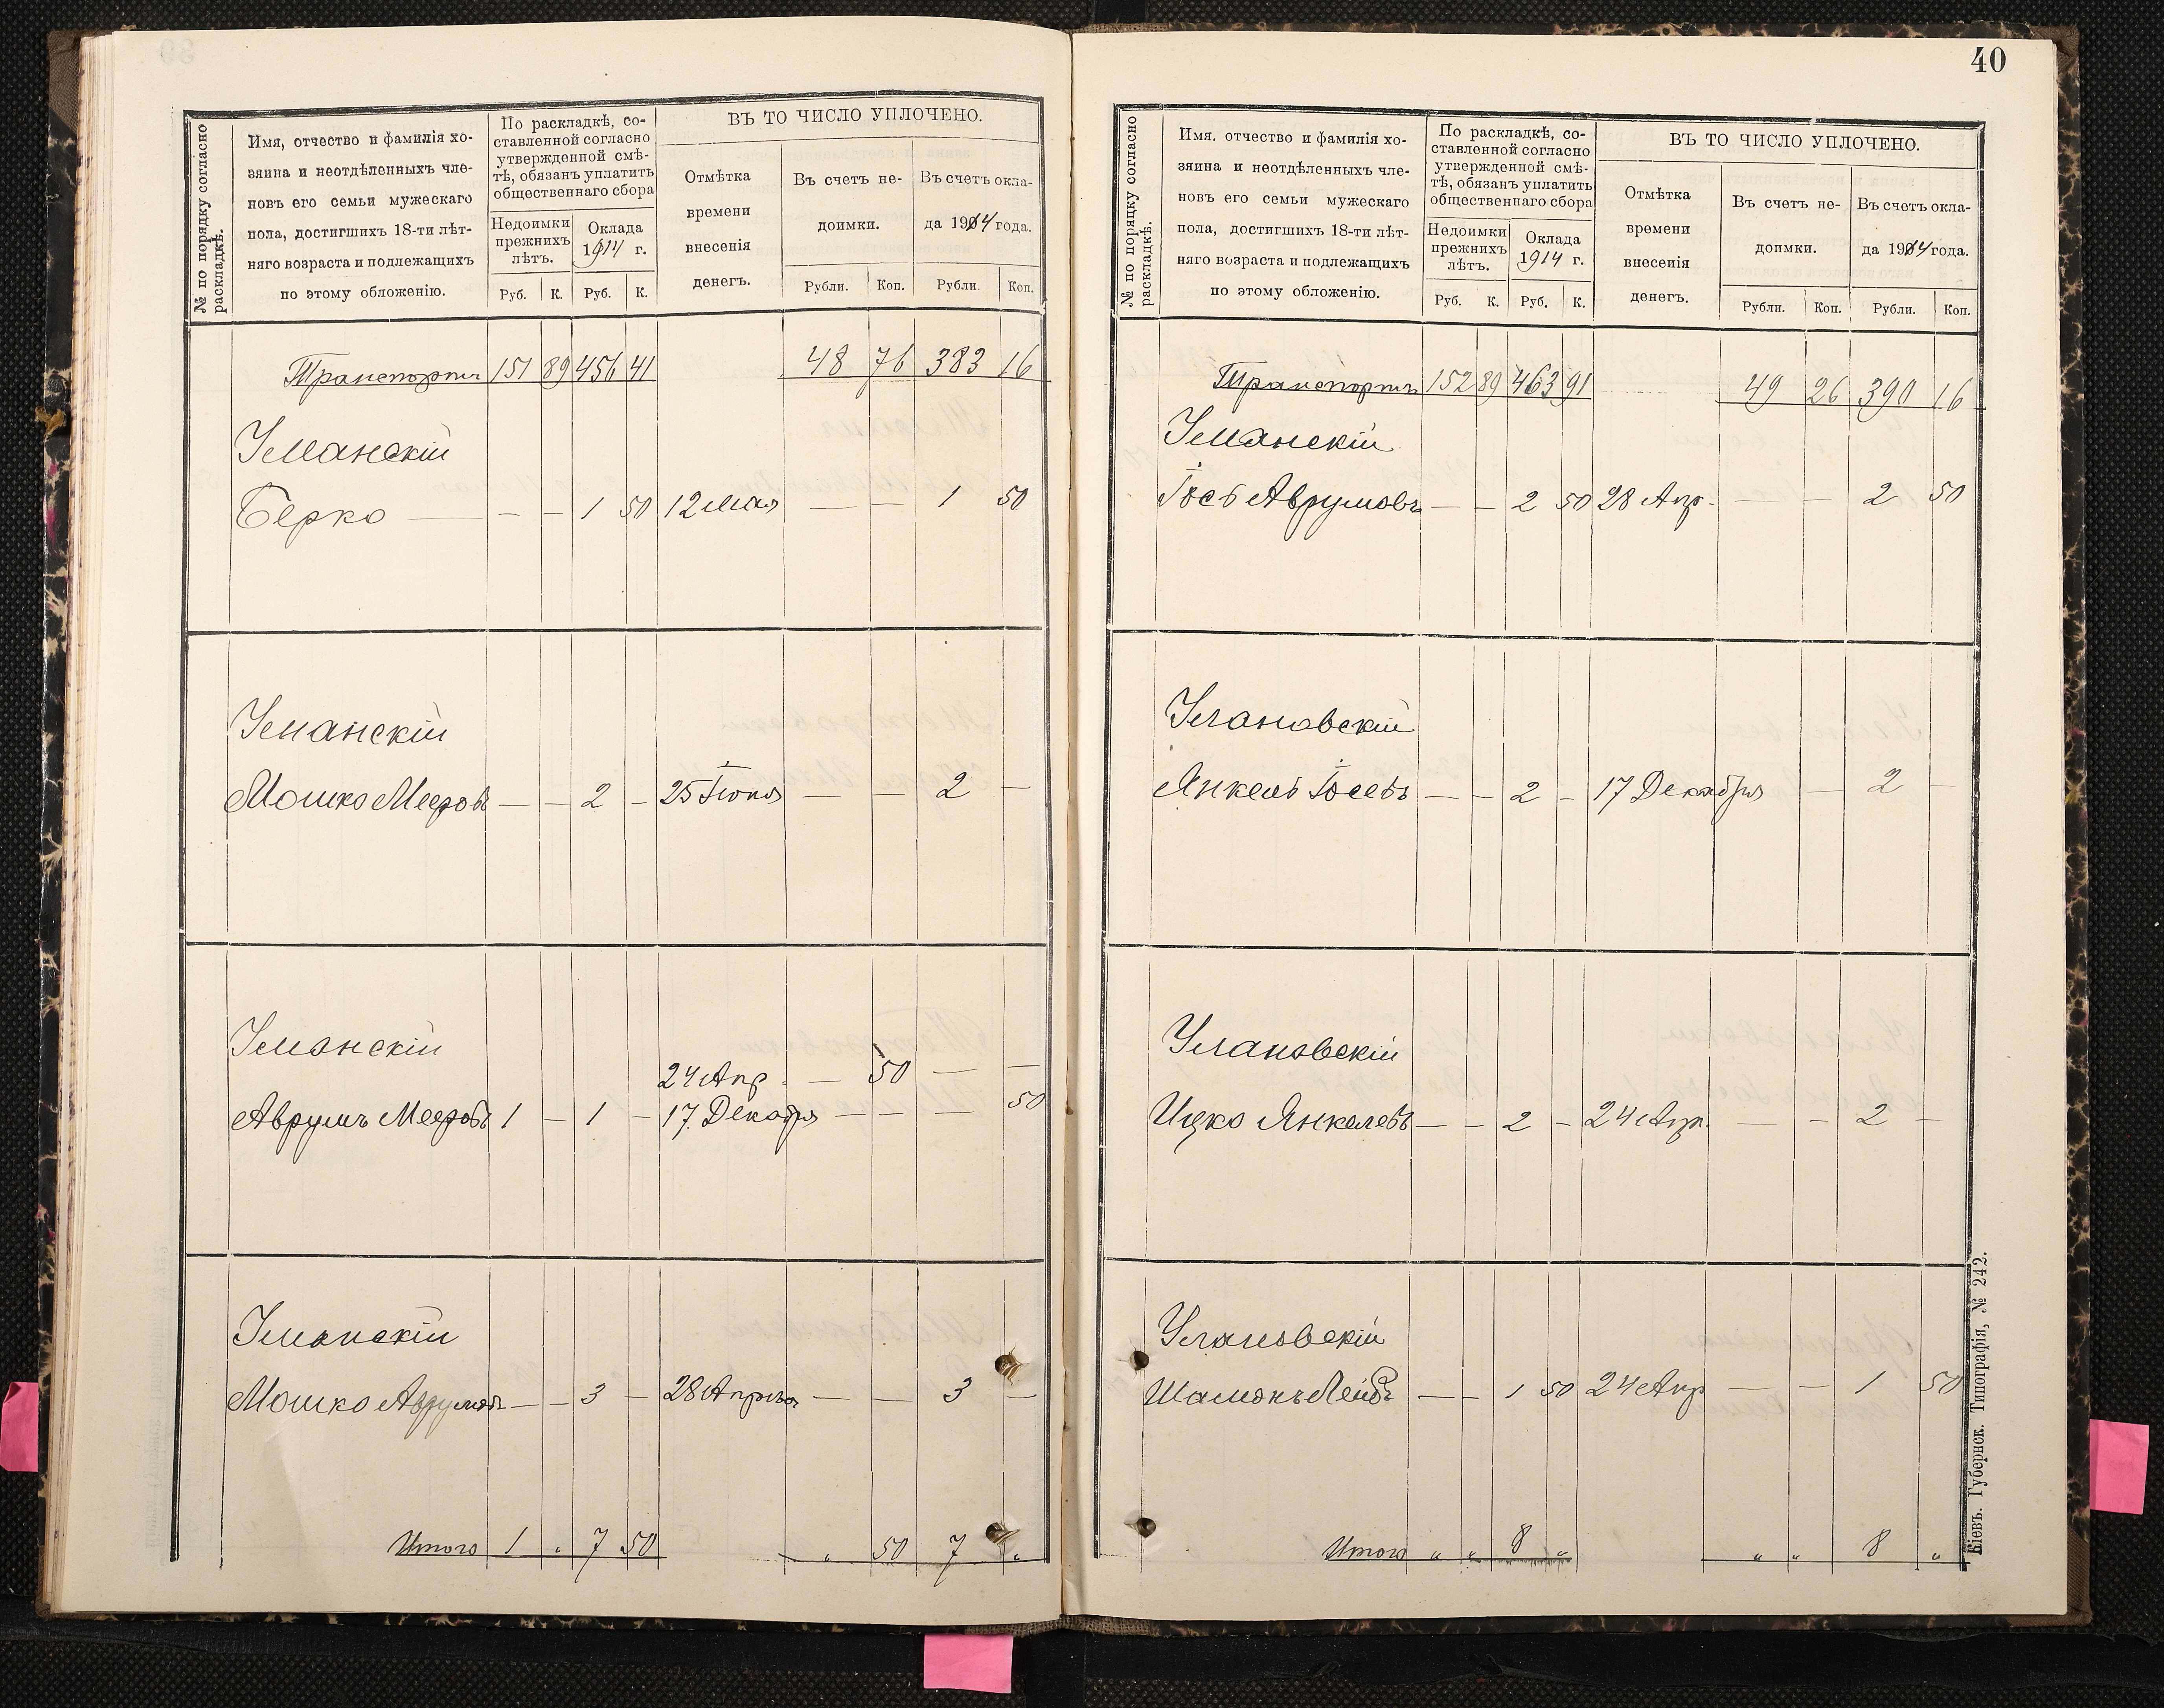 № по порядку согласно
раскладкѣ.
Имя, отчество и фамилія хо-
зяина и неотдѣленныхъ чле-
новъ его семьи мужескаго
пола, достигшихъ 18-ти лѣт-
няго возраста и подлежащихъ
по этому обложенію.
По раскладкѣ, со-
ставленной согласно
утвержденной смѣ-
тѣ, обязанъ уплатить
общественнаго сбора
Недоимки
прежнихъ
лѣтъ.
Оклада
1914 г.
Руб. К. Руб. К.
ВЪ ТО ЧИСЛО УПЛОЧЕНО.
Отмѣтка
времени
внесенія
денегъ.
Въ счетъ не-
доимки.
Въ счетъ окла-
да 1914 года.
Рубли. Коп. Рубли. Коп.
Транспортъ 151 89 456 41 48 76 383 16
Уманскій
Берко — — — 1 50 12 Мая — — 1 50
Уманскій
Мошко Мееровъ — — 2 — 25 Іюня — — 2 —
Уманскій
24 Апр. — 50 — —
Аврумъ Мееровъ 1 — 1 — 17 Декабря — — — 50
Уманскій
Мошко Аврумовъ — — 3 — 28 Апрѣля — — 3 —
Итого 1 „ 7 50 „ 50 7 „
40
№ по порядку согласно
раскладкѣ.
Имя, отчество и фамилія хо-
зяина и неотдѣленныхъ чле-
новъ его семьи мужескаго
пола, достигшихъ 18-ти лѣт-
няго возраста и подлежащихъ
по этому обложенію.
По раскладкѣ, со-
ставленной согласно
утвержденной смѣ-
тѣ, обязанъ уплатить
общественнаго сбора
Недоимки
прежнихъ
лѣтъ.
Оклада
1914 г.
Руб. К. Руб. К.
ВЪ ТО ЧИСЛО УПЛОЧЕНО.
Отмѣтка
времени
внесенія
денегъ.
Въ счетъ не-
доимки.
Въ счетъ окла-
да 1914 года.
Рубли. Коп. Рубли. Коп.
Транспортъ 152 89 463 91 49 26 390 16
Уманскій
Іось Аврумовъ — — 2 50 28 Апр. — — 2 50
Улановскій
Янкель Іосевъ — — 2 — 17 Декабря — 2 —
Улановскій
Ицко Янкелевъ — — 2 — 24 Апр. — — 2 —
Улановскій
Шаменъ Лейб. — — 1 50 24 Апр — — 1 50
Итого „ „ 8 „ „ „ 8 „
Кіевъ. Губернск. Типографія, № 242.